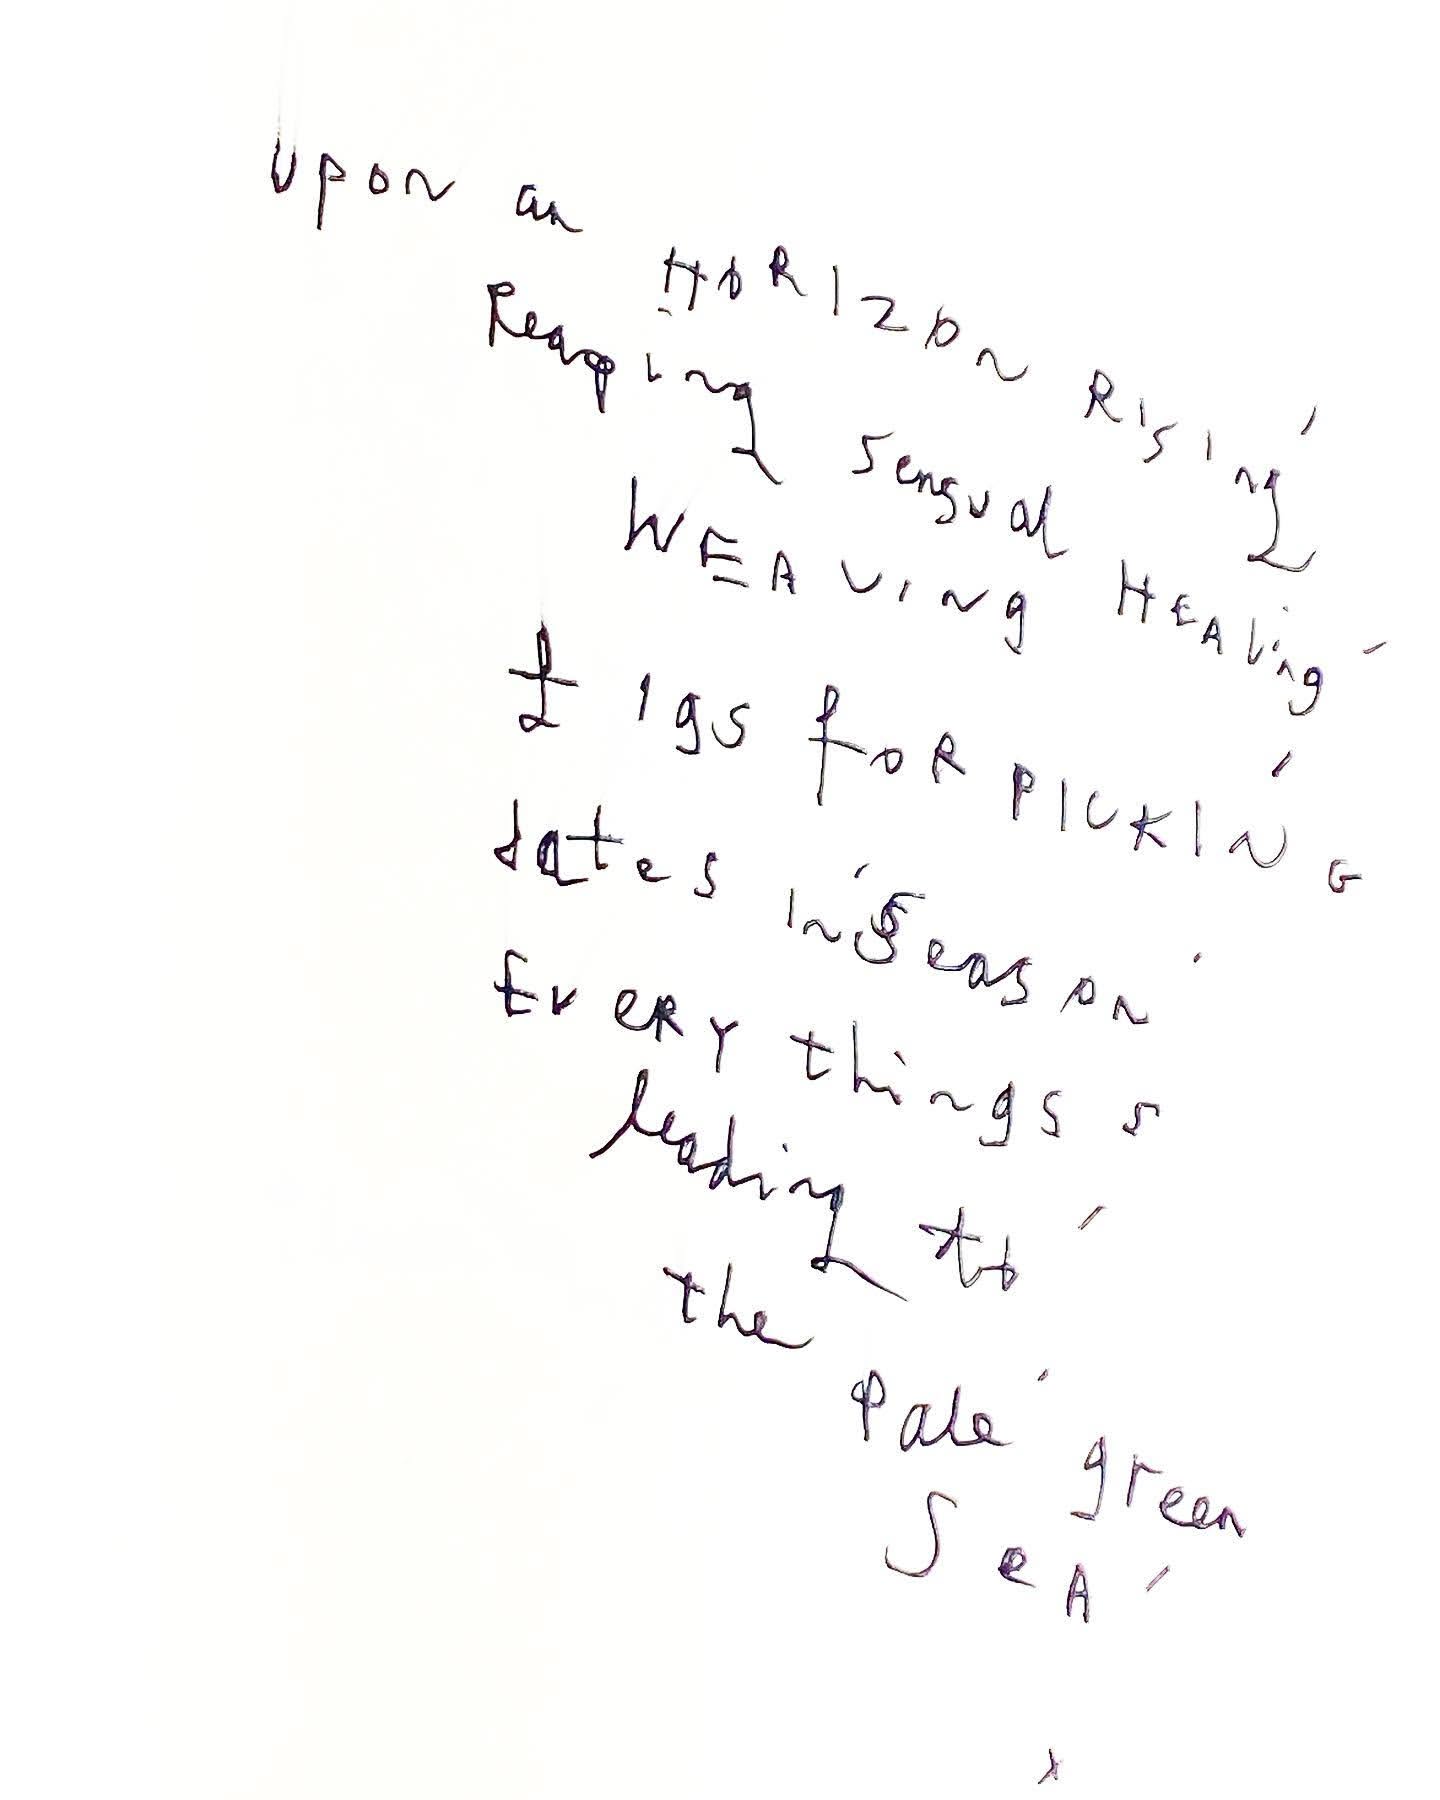 Upon an HORIZON RISIng
Reaping Sensual HEAling
WEAVING
figs foR PICKING
dates In Season
EveRY things s
leading to
the Pale green
SeA
x